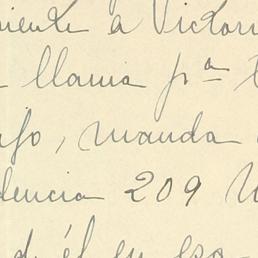 niente a Victori
llama pª
jo, manda
dencia 209
d él en eso